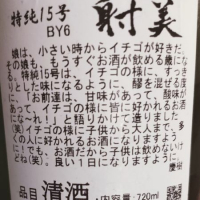 特純15号
BY6
射美
娘は、小さい時からイチゴが好きだ。
その娘も、もうすぐお酒が飲める歳になる。特純15号は、イチゴの様に、すっき
りとした味になるように、醪を混ぜる度
に、「お前達は、甘味があって、酸味が
あって、イチゴの様に皆に好かれるお酒
にな〜れ!」と語りかけて造りました
(笑)イチゴの様に子供から大人まで、多
くの人に好かれるお酒になります様
に!でも、お酒だから子供は飲めないけ
どね(笑)。良い1日になりますように
品目 清酒
内容量720ml